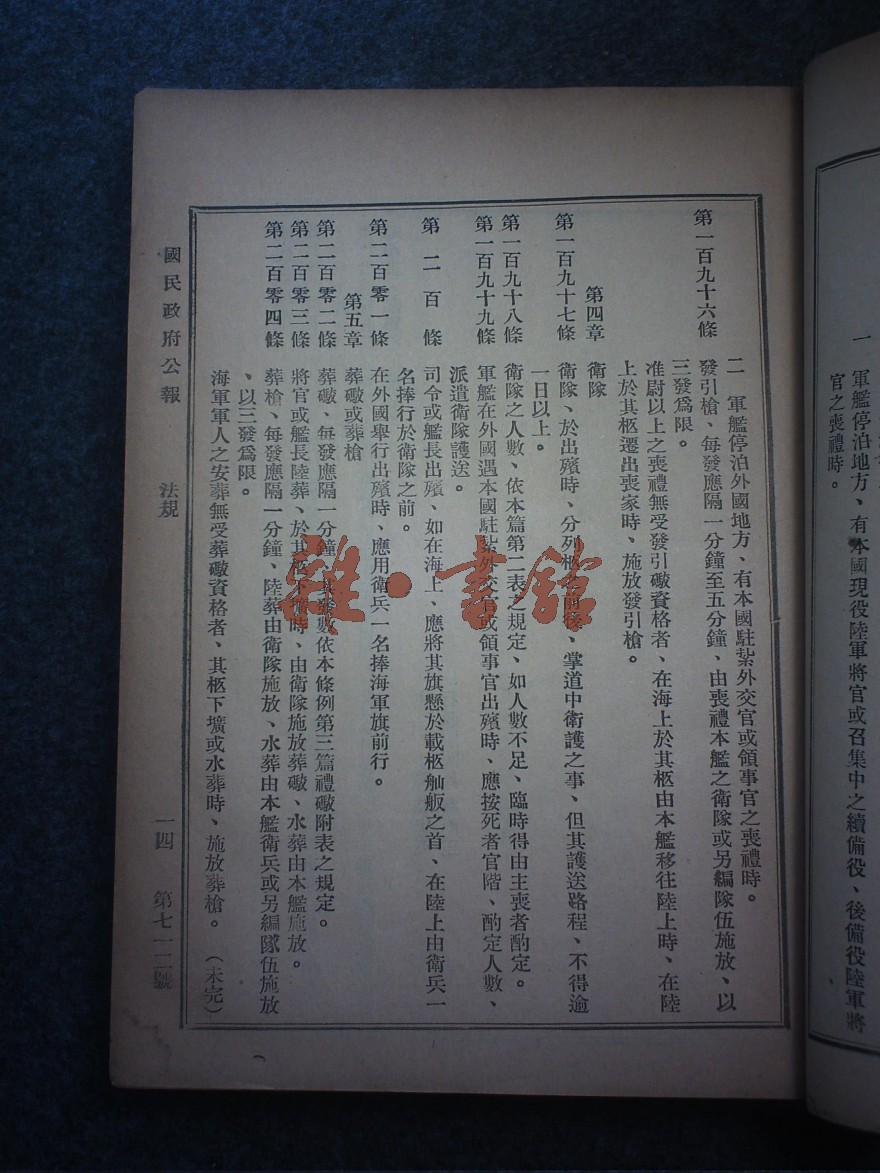 一　軍艦停泊地方、有本國現役陸軍將官或召集中之續備役、後備役陸軍將
官之喪禮時。
二　軍艦停泊外國地方、有本國駐紮外交官或領事官之喪禮時。
第一百九十六條　發引槍、每發應隔一分鐘至五分鐘、由喪禮本艦之衛隊或另編隊伍施放、以
三發爲限。
准尉以上之喪禮無受發引礮資格者、在海上於其柩由本艦移往陸上時、在陸
上於其柩遷出喪家時、施放發引槍。
第四章　衛隊
第一百九十七條　衛隊、於出殯時、分列柩之前後、掌道中衛護之事、但其護送路程、不得逾
一日以上。
第一百九十八條　衛隊之人數、依本篇第二表之規定、如人數不足、臨時得由主喪者酌定。
第一百九十九條　軍艦在外國遇本國駐紮外交官或領事官出殯時、應按死者官階、酌定人數、
派遣衛隊護送。
第二百條　司令或艦長出殯、如在海上、應將其旗懸於載柩舢舨之首、在陸上由衛兵一
名捧行於衛隊之前。
第二百零一條　在外國舉行出殯時、應用衛兵一名捧海軍旗前行。
第五章　葬礮或葬槍
第二百零二條　葬礮、每發應隔一分鐘、其發數依本條例第三篇禮礮附表之規定。
第二百零三條　將官或艦長陸葬、於其柩下壙時、由衛隊施放葬礮、水葬由本艦施放。
第二百零四條　葬槍、每發應隔一分鐘、陸葬由衛隊施放、水葬由本艦衛兵或另編隊伍施放
、以三發爲限。
海軍軍人之安葬無受葬礮資格者、其柩下壙或水葬時、施放葬槍。　（未完）
國民政府公報　法規　一四　第七一二號
雜·書館